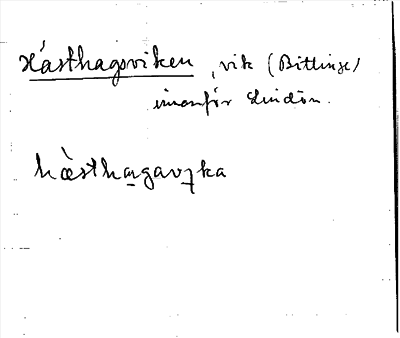 Hästhagsviken, vik (Bittinge)
innanför Lindön.
hæ̀sthagavıka